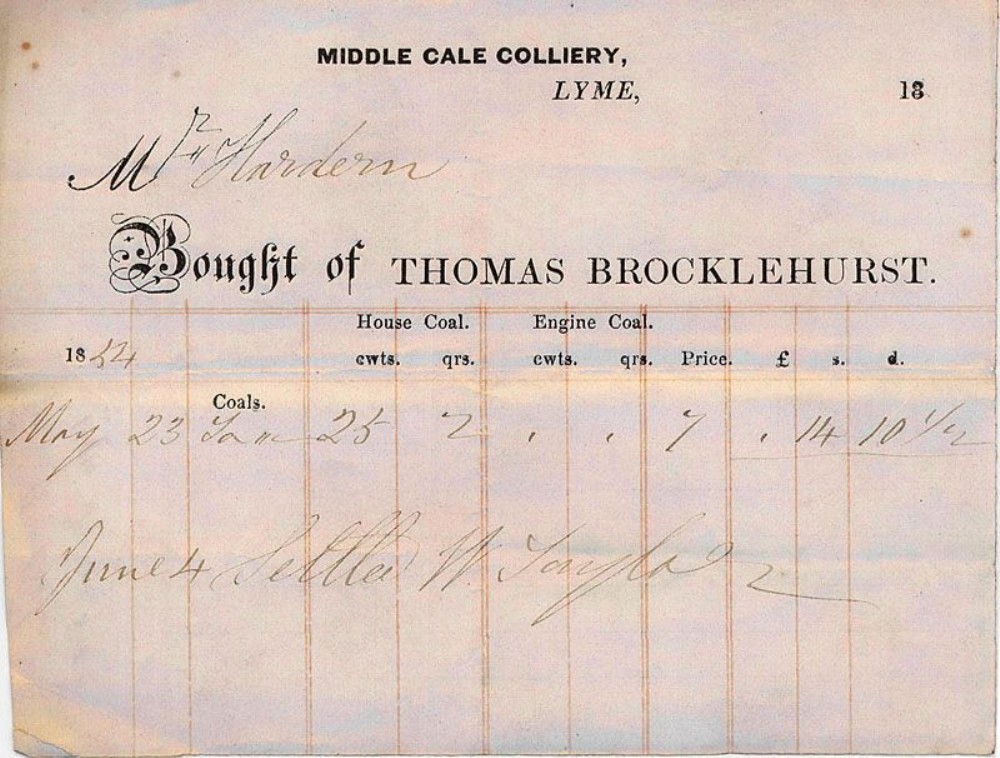 MIDDLE CALE COLLIERY,
LYME, 18
Mr Hardern
Bought of THOMAS BROCKLEHURST.
House Coal. Engine Coal.
1854 cwts. qrs. cwts. qrs. Price. £ s. d.
Coals.
May 23 25 2 . . 7 . 14 10 1/2
June 4 Settled W. Taylor